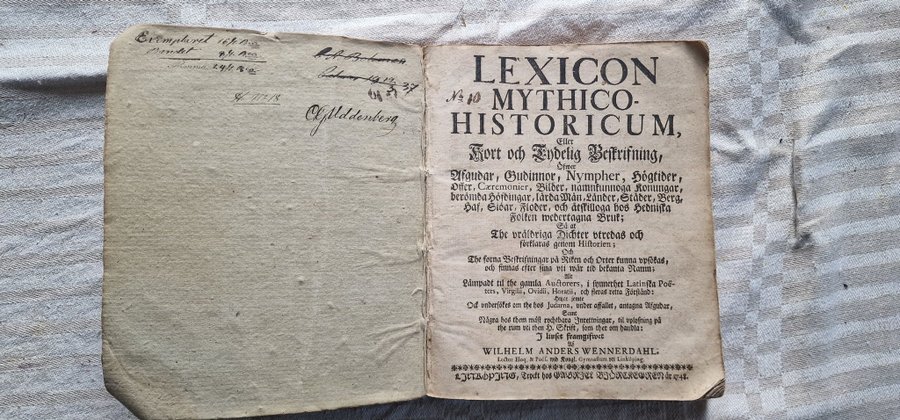 Exemplaret
Bandet
C G Uddenberg
LEXICON
No 10
MYTHICO-
HISTORICUM,
Eller
Kort och Tydelig Beskrifning,
Öfwer
Afgudar, Gudinnor, Nympher, Högtider,
Offer, Cæremonier, Bilder, namnkunnoga Konungar,
berömda Höfdingar, lärda Män, Länder, Städer, Berg,
Haf, Siöar, Floder, och åtskilloga hos Hedniska
Folken wedertagna Bruk;
Så at
The vräldriga Dichter vtredas och
förklaras genom Historien;
Och
The forna Beskrifningar på Riken och Orter kunna vpsökas,
och finnas efter sina vti wår tid bekanta Namn;
Alt
Lämpadt til the gamla Auctorers, i synnerhet Latinska Poë-
ters, Virgilii, Ovidii, Horatii, och fleras rätta Förstånd;
Hwar jemte
Ock undersökes om the hos Judarna, under affallet, antagna Afgudar,
Samt
Några hos thom mäst rychtbara Inrettningar, til vplysning på
the rum vti then H. Skrift, som ther om handla:
I liuset framgifwet
Af
WILHELM ANDERS WENNERDAHL,
Lector Eloq. & Poës. wid Kongl. Gymnasium vti Linköping.
LINKÖPING, Tryckt hos GABRIEL BIÖRCKEGREN år 1748.